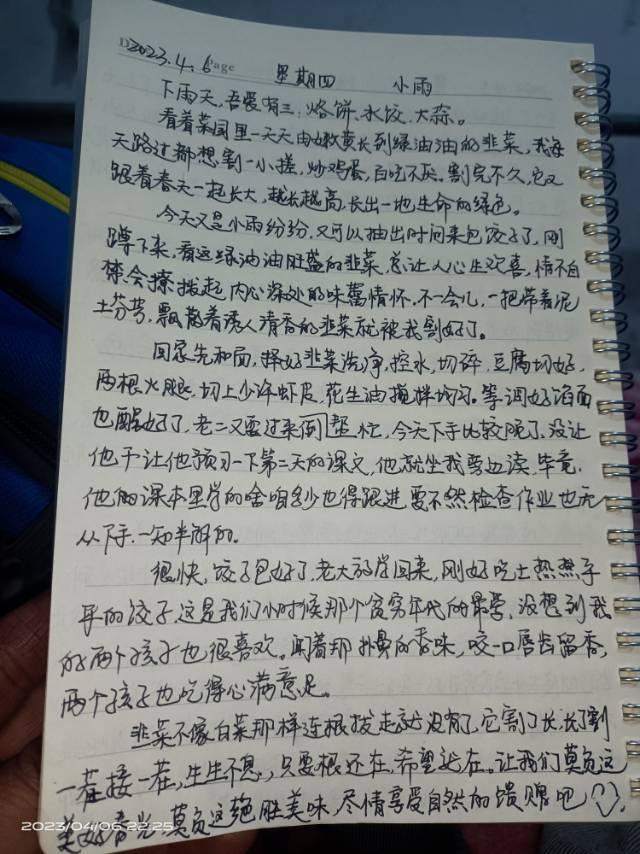 2023.4.6 Page 星期四 小雨
下雨天,吾爱有三:烙饼、水饺、大蒜。
看着菜园里一天天由嫩黄长到绿油油的韭菜,我每
天路过都想割一小搓,炒鸡蛋,百吃不厌。割完不久,它又
跟着春天一起长大,越长越高,长出一地生命的绿色。
今天又是小雨纷纷,又可以抽出时间来包饺子了,刚
蹲下来,看这绿油油旺盛的韭菜,总让人心生欢喜,情不自
禁会撩拨起内心深处的味蕾情怀。不一会儿,一把带着泥
土芬芳,飘散着诱人清香的韭菜就被我割好了。
回家先和面,择好韭菜洗净,控水,切碎,豆腐切好,
两根火腿,切上少许虾皮,花生油搅拌均匀。等调好馅面
也醒好了,老二又要过来倒帮忙,今天下手比较晚了,没让
他干让他预习一下第二天的课文,他就坐我旁边读,毕竟,
他的课本里学的啥咱多少也得跟进要不然检查作业也无
从下手,一知半解的。
很快,饺子包好了,老大放学回来,刚好吃上热热乎
乎的饺子,这是我们小时候那个贫穷年代的最爱,没想到我
的两个孩子也很喜欢。闻着那扑鼻的香味,咬一口唇齿留香,
两个孩子也吃得心满意足。
韭菜不像白菜那样连根拔走就没有了,它割了长,长了割
一茬接一茬,生生不息,只要根还在,希望就在。让我们莫负这
美好春光,莫负这绝胜美味,尽情享受自然的馈赠吧
2023/04/06 22:25